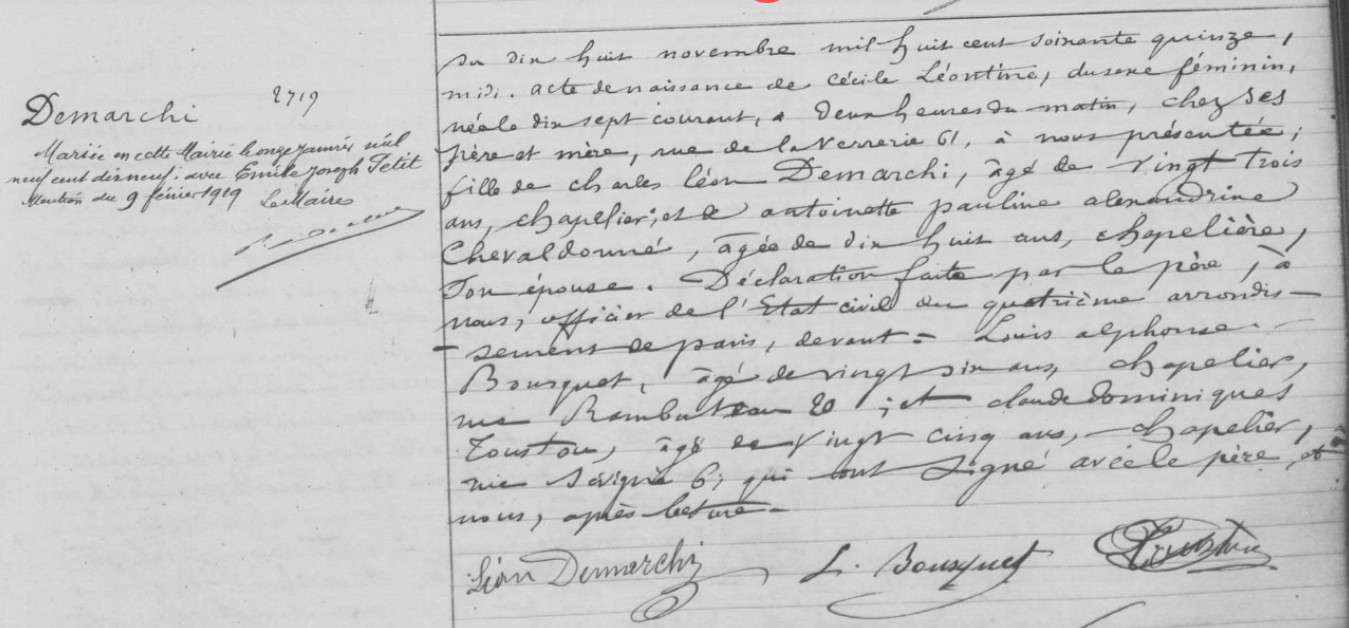 2719
Demarchi
Mariée en cette Mairie le onze janvier mil
neuf cent dix neuf. avec Emile Joseph Petit
Mention du 9 février 1919
Le Maire
du dix huit novembre mil huit cent soixante quinze,
midi. acte de naissance de Cécile Léontine, du sexe féminin,
née le dix sept courant, à deux heures du matin, chez ses
père et mère, rue de la Verrerie 61, à nous présentée;
fille de Charles Léon Demarchi, âgé de vingt trois
ans, chapelier; et de antoinette pauline alexandrine
Chevaldonné, âgée de dix huit ans, chapelière,
son épouse. Déclaration faite par le père, à
nous, officier de l'Etat civil du quatrième arrondis-
-sement de paris, devant = Louis alphonse
Bousquet, âgé de vingt six ans, chapelier,
rue Rambuteau 20 ; et claude dominique
Toustou, âgé de vingt cinq ans, chapelier,
rue Sévigné 6; qui ont signé avec le père, et
nous, après lecture -
Léon Demarchi L. Bousquet